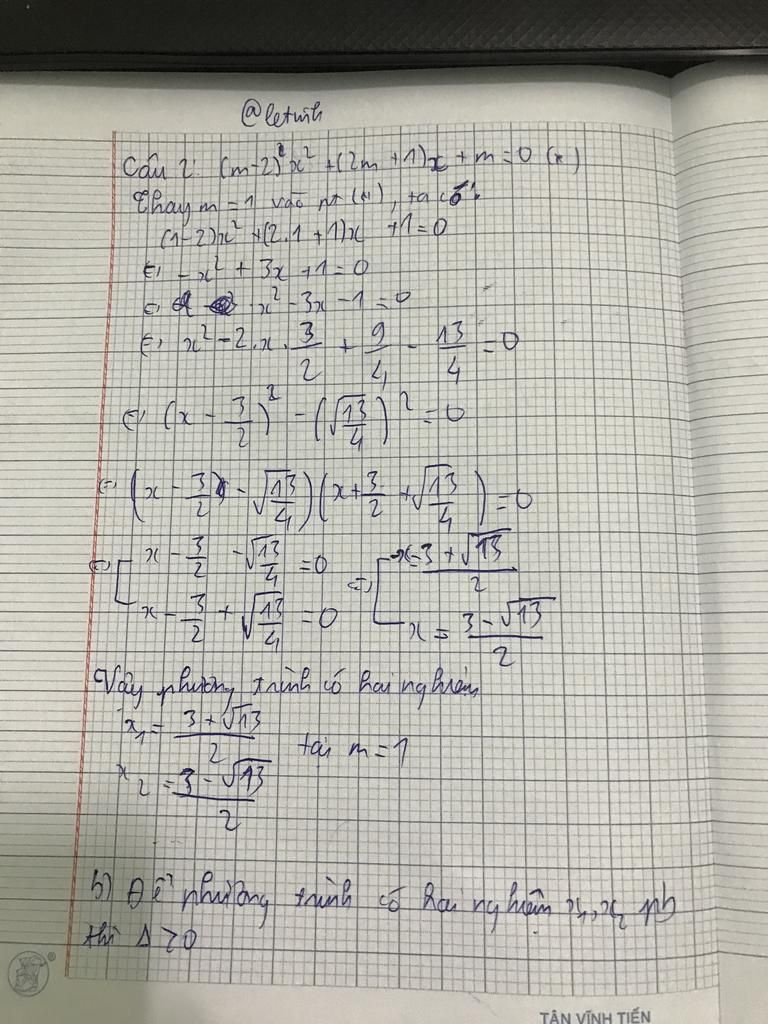 @letinh
Câu 2: (m-2)x² + (2m+1)x + m = 0 (*)
Thay m = 1 vào pt (*), ta có:
(1-2)x² + (2.1+1)x + 1 = 0
⇔ -x² + 3x + 1 = 0
⇔ x² - 3x - 1 = 0
⇔ x² - 2.x.3/2 + 9/4 - 13/4 = 0
⇔ (x - 3/2)² - (√13/4)² = 0
⇔ (x - 3/2 - √13/4)(x + 3/2 + √13/4) = 0
⇔ [ x - 3/2 - √13/4 = 0 ⇔ [ x = 3+√13/2
x - 3/2 + √13/4 = 0 x = 3-√13/2
Vậy phương trình có hai nghiệm
x₁ = 3+√13/2 tại m = 1
x₂ = 3-√13/2
b) Để phương trình có hai nghiệm x₁, x₂ pb
thì Δ > 0
TÂN VĨNH TIẾN